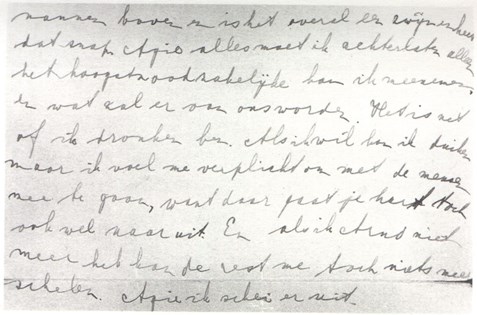 mannen boven en is het overal een
dat snap Agie alles moet ik achterlaten alleen
het hoogstnoodzakelijke kan ik meenemen,
en wat zal er van ons worden. Het is net
of ik dronken ben. Als ik wil kan ik duiken
maar ik voel me verplicht om met de mensen
mee te gaan, want daar gaat je hart toch
ook wel naar uit. En als ik Arno niet
meer heb kan de rest me toch niets meer
schelen. Agie ik schei er uit.